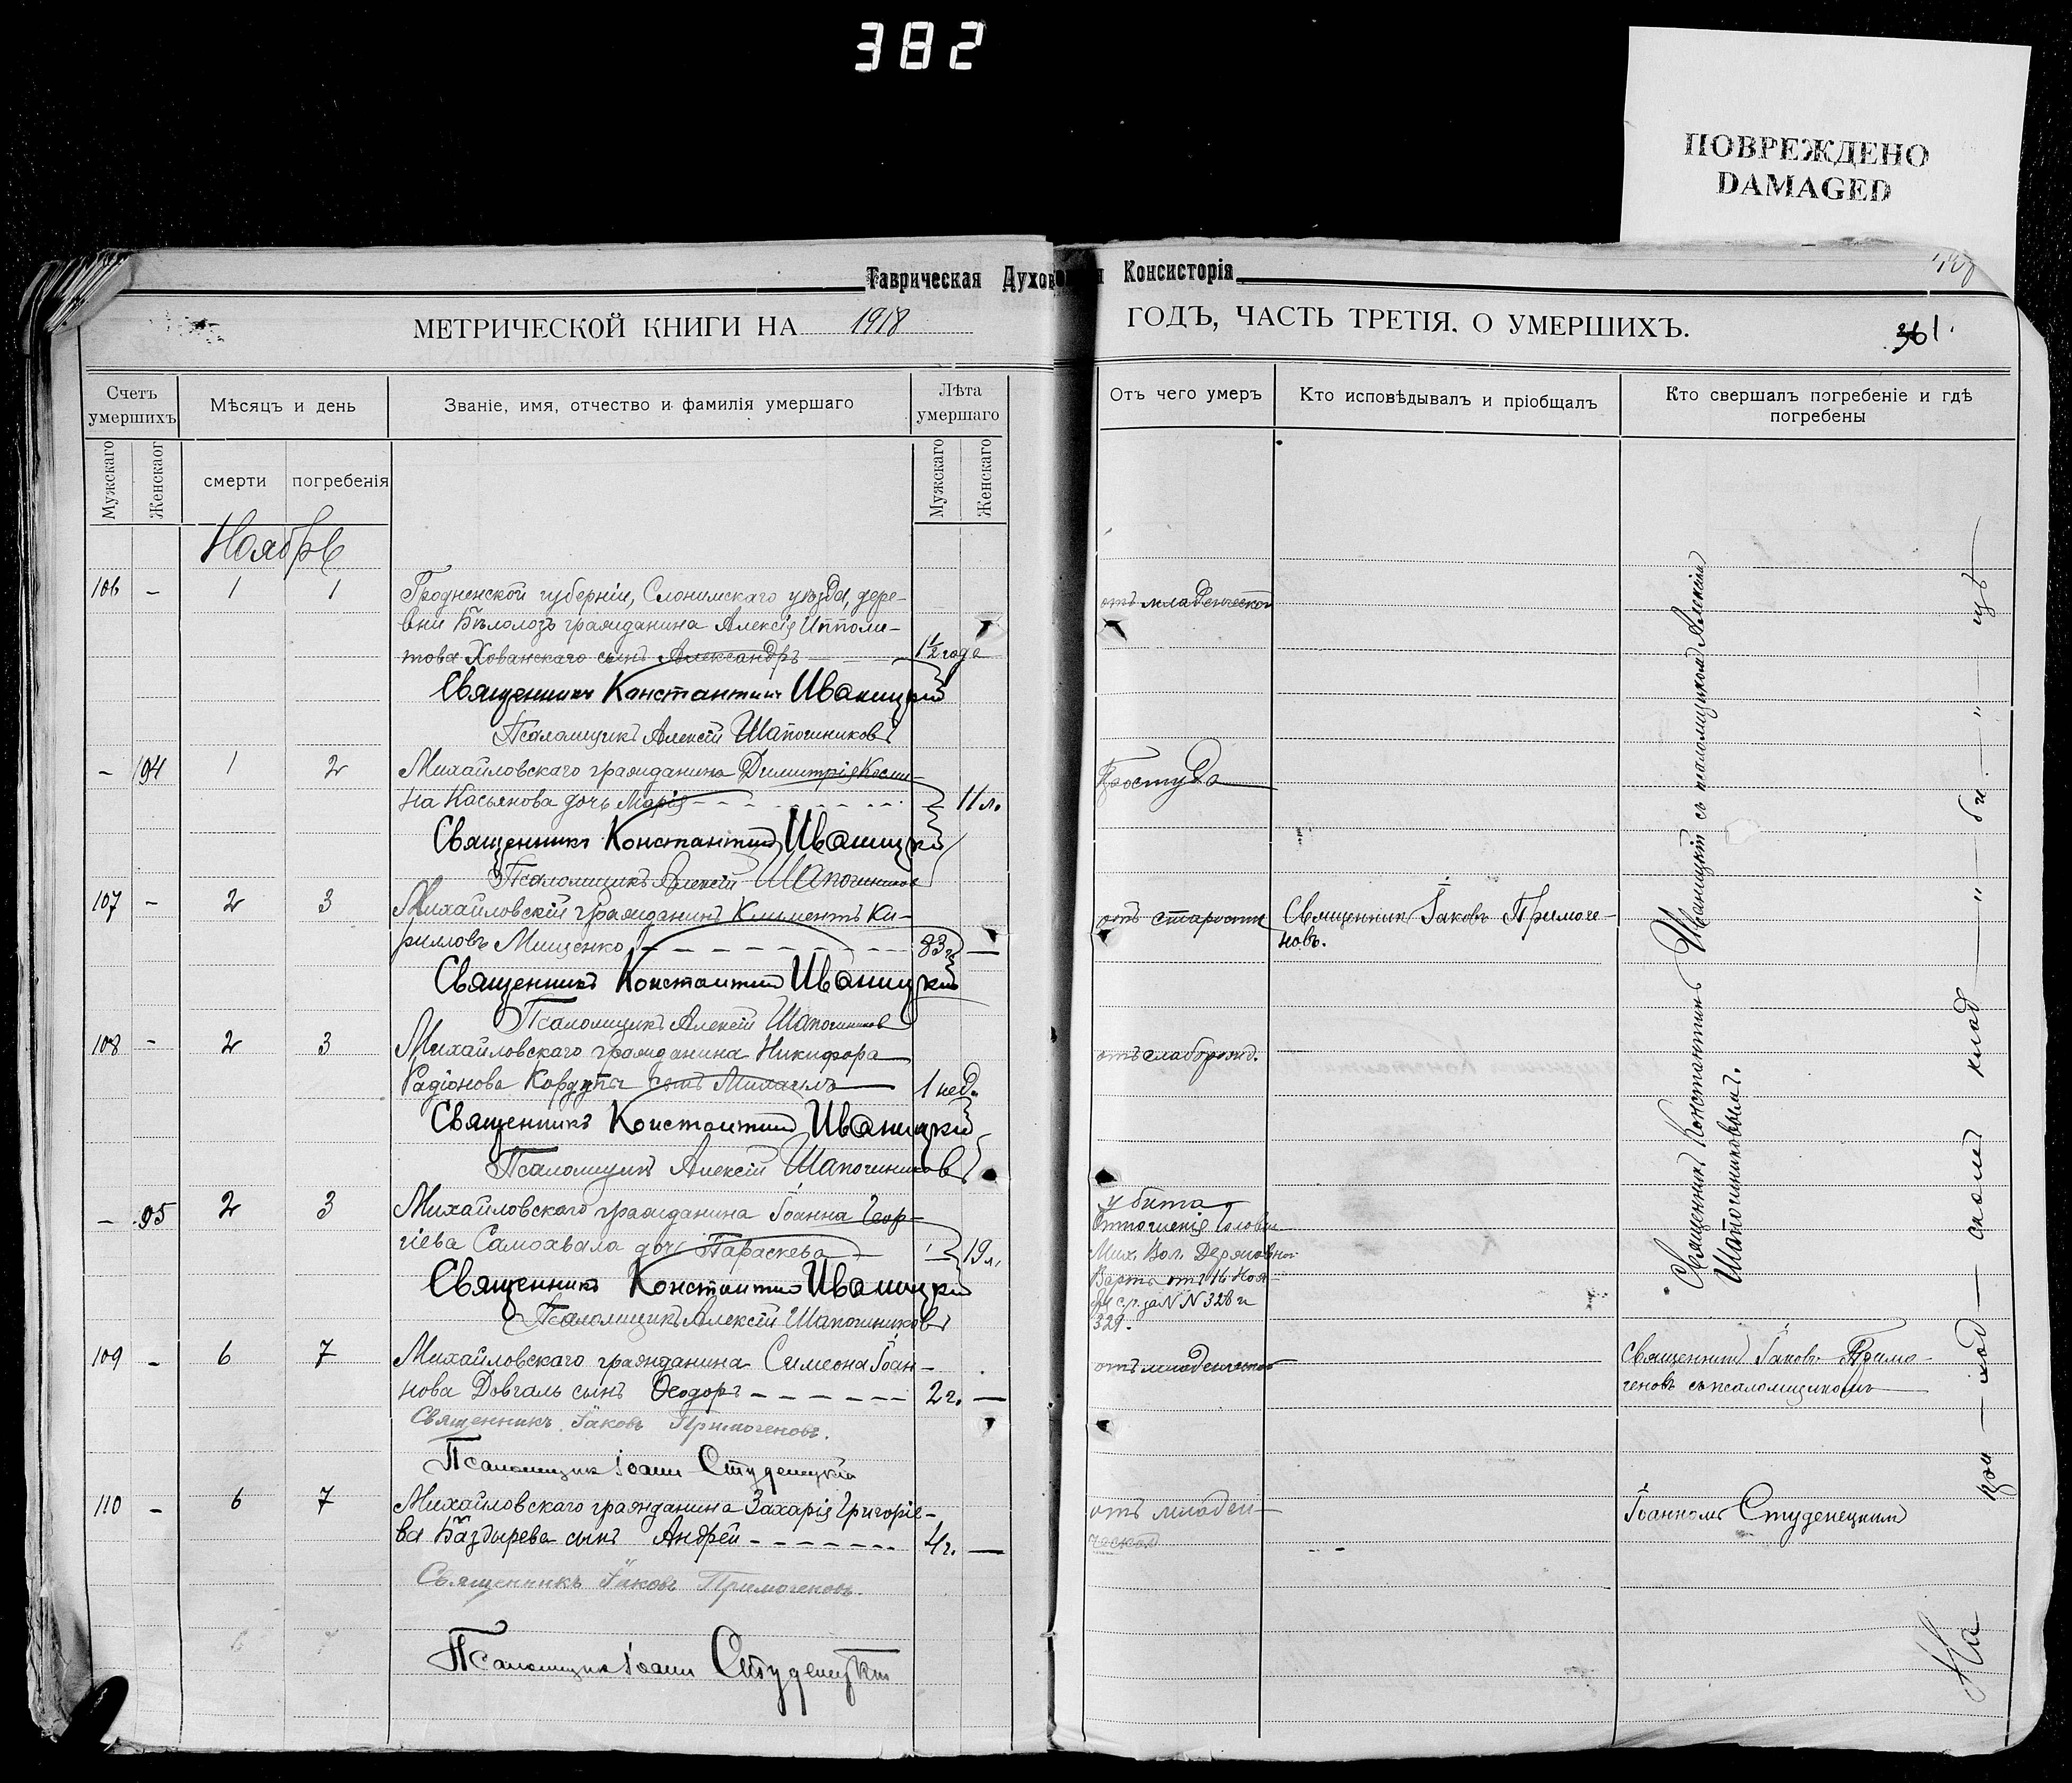 382
ПОВРЕЖДЕНО
DAMAGED
Таврическая Духовная Консисторія
МЕТРИЧЕСКОЙ КНИГИ НА 1918 ГОДЪ, ЧАСТЬ ТРЕТІЯ. О УМЕРШИХЪ.
361.
Счетъ умершихъ
Мужскаго
Женскаог
Мѣсяцъ и день
смерти
погребенія
Званіе, имя, отчество и фамилія умершаго
Лѣта умершаго
Мужскаго
Женскаго
Отъ чего умеръ
Кто исповѣдывалъ и пріобщалъ
Кто свершалъ погребеніе и гдѣ
погребены
Ноябрь
106 - 1 1 Гродненской губерніи, Слонимскаго уѣзда, дере-
вни Бѣлолозъ гражданина Алексія Ипполи-
това Хованскаго сынъ Александръ 1½ года
отъ младенческой
Священникъ Константинъ Иваницкій
Псаломщикъ Алексій Шапочниковъ
- 94 1 2 Михайловскаго гражданина Димитрія Косми-
на Касьянова дочь Марія 11 л.
Простуда
Священникъ Константинъ Иваницкій
Псаломщикъ Алексій Шапочниковъ
107 - 2 3 Михайловскій гражданинъ Климентъ Ки-
рилловъ Мищенко 83 г. —
отъ старости
Священникъ Іаковъ Примоге-
новъ.
Священникъ Константинъ Иваницкій
Псаломщикъ Алексій Шапочниковъ
108 - 2 3 Михайловскаго гражданина Никифора
Радіонова сынъ Михаилъ 1 нед.
отъ слаборожд.
Священникъ Константинъ Иваницкій
Псаломщикъ Алексій Шапочниковъ
- 95 2 3 Михайловскаго гражданина Іоанна Геор-
гіева Самохвала дочь Параскева 19 л.
убита
Отношенія Головы
Мих. Вол. Державной
Варты отъ 16 Ноя-
бря с.г. за NN 328 и
329.
Священникъ Константинъ Иваницкій
Псаломщикъ Алексій Шапочниковъ
109 - 6 7 Михайловскаго гражданина Симеона Іоан-
нова Довгаль сынъ Ѳеодоръ 2 г. —
отъ младенческой
Священникъ Іаковъ Примогеновъ.
Псаломщикъ Іоаннъ Студенецкій
110 - 6 7 Михайловскаго гражданина Захарія Григорье-
ва Баздырева сынъ Андрей 4 г. —
отъ младен-
ческой
Священникъ Іаковъ Примогеновъ.
Псаломщикъ Іоаннъ Студенецкій
Священникъ Константинъ Иваницкій съ псаломщикомъ Алексіемъ
Шапочниковымъ.
Священникъ Іаковъ Примо-
геновъ съ псаломщикомъ
Іоанномъ Студенецкимъ
На при — ход — скомъ клад — " — би — " — щѣ